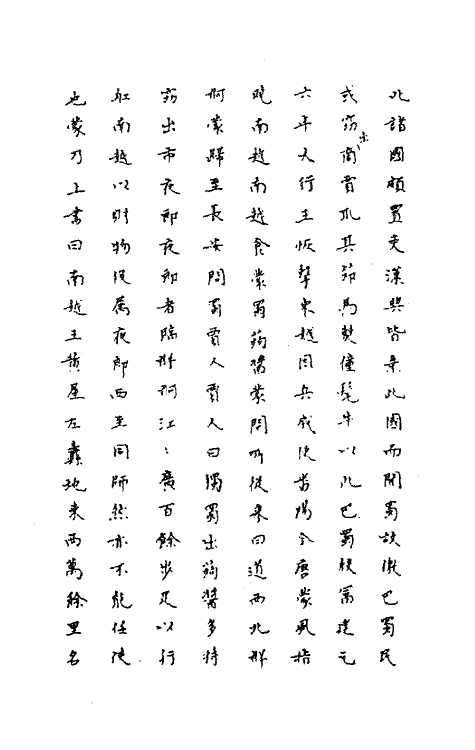 此諸國頗置吏漢興皆棄此國而開蜀故徼巴蜀民
或窃出商賈取其筰馬僰僮髦牛以此巴蜀殷富建元
六年大行王恢擊東越因兵威使番陽令唐蒙風指
曉南越南越食蒙蜀蒟醬蒙問所從來曰道西北牂
牁蒙歸至長安問蜀賈人賈人曰獨蜀出蒟醬多持
窃出市夜郎夜郎者臨牂牁江〻廣百餘步足以行
船南越以財物役屬夜郎西至同師然亦不能臣使
也蒙乃上書曰南越王黃屋左纛地東西萬餘里名